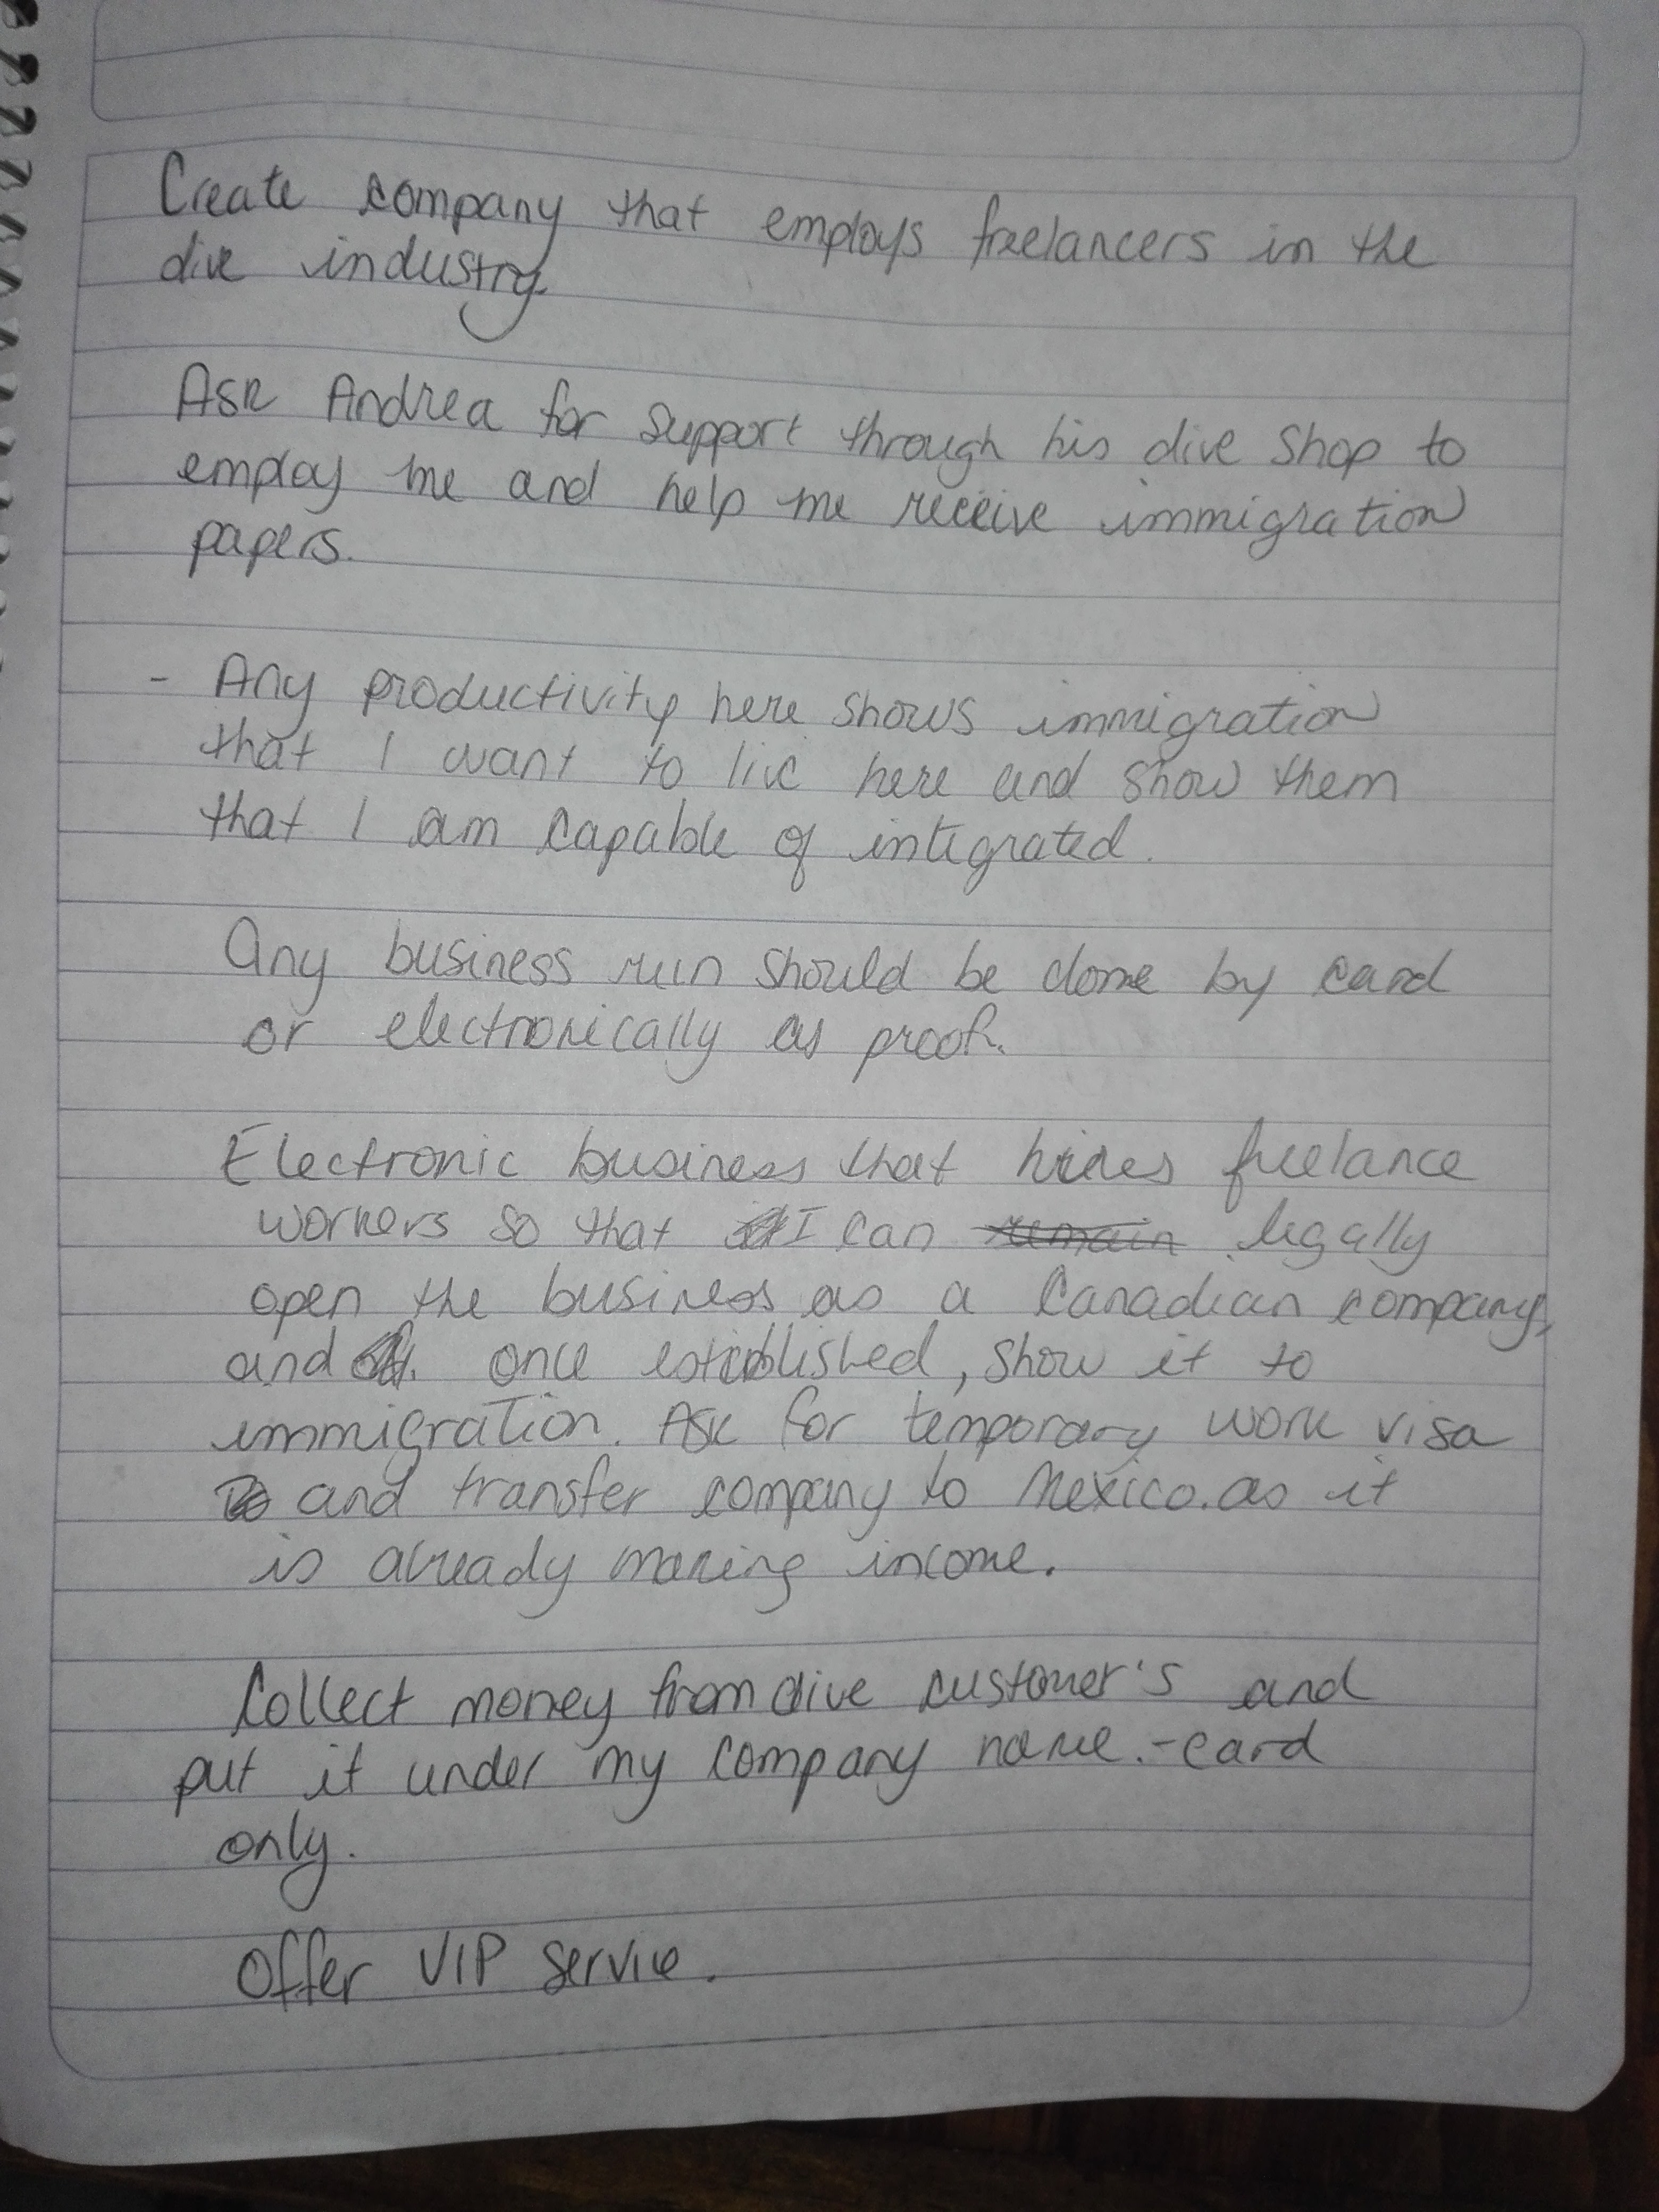 Create company that employs freelancers in the
dive industry.
Ask Andrea for support through his dive shop to
employ me and help me receive immigration
papers.
- Any productivity here shows immigration
that I want to live here and show them
that I am capable of integrated.
any business run should be done by card
or electronically as proof.
Electronic business that hires freelance
workers so that I can remain legally
open the business as a Canadian company,
and once established, show it to
immigration. Ask for temporary work visa
and transfer company to Mexico. as it
is already making income.
Collect money from dive customer's and
put it under my company name. - card
only.
Offer VIP service.